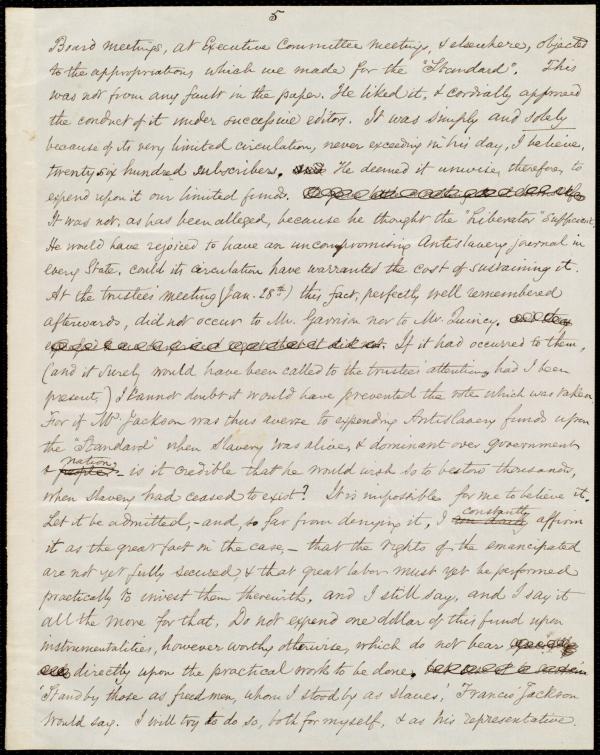 5
Board meetings, at Executive Committee meetings, & elsewhere, objected
to the appropriations which we made for the "Standard". This
was not from any fault in the paper. He liked it, & cordially approved
the conduct of it under successive editors. It was simply and solely
because of its very limited circulation, never exceeding in his day, I believe,
twenty six hundred subscribers. He deemed it unwise, therefore, to
expend upon it our limited funds.
It was not, as has been alleged, because he thought the "Liberator" sufficient.
He would have rejoiced to have an uncompromising Antislavery journal in
every State, could its circulation have warranted the cost of sustaining it.
At the trustees' meeting (Jan. 28th) this fact, perfectly well remembered
afterwards, did not occur to Mr. Garrison nor to Mr. Quincy.
If it had occurred to them,
(and it surely would have been called to the trustees attention, had I been
present,) I cannot doubt it would have prevented the vote which was taken.
For if Mr. Jackson was thus averse to expending Antislavery funds upon
the "Standard" when slavery was alive, & dominant over government
& people nation - is it credible that he would wish so to bestow thousands,
when slavery had ceased to exist? It is impossible for me to believe it.
Let it be admitted, - and, so far from denying it, I constantly affirm
it as the great fact in the case, - that the rights of the emancipated
are not yet fully secured, & that great labor must yet be performed
practically to invest them therewith, and I still say, and I say it
all the more for that, Do not expend one dollar of this fund upon
instrumentalities, however worthy otherwise, which do not bear
directly upon the practical work to be done.
'Stand by those as freedmen, whom I stood by as slaves,' Francis Jackson
would say. I will try to do so, both for myself, & as his representative.